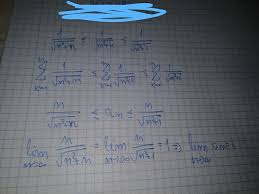 1/√(n²+n) ≤ 1/√(n²+k) ≤ 1/√(n²+1)
∑ 1/√(n²+n) ≤ ∑ 1/√(n²+k) ≤ ∑ 1/√(n²+1)
n/√(n²+n) ≤ an ≤ n/√(n²+1)
lim n→∞ n/√(n²+n) = lim n→∞ n/√(n²+1) = 1 ⇒ lim n→∞